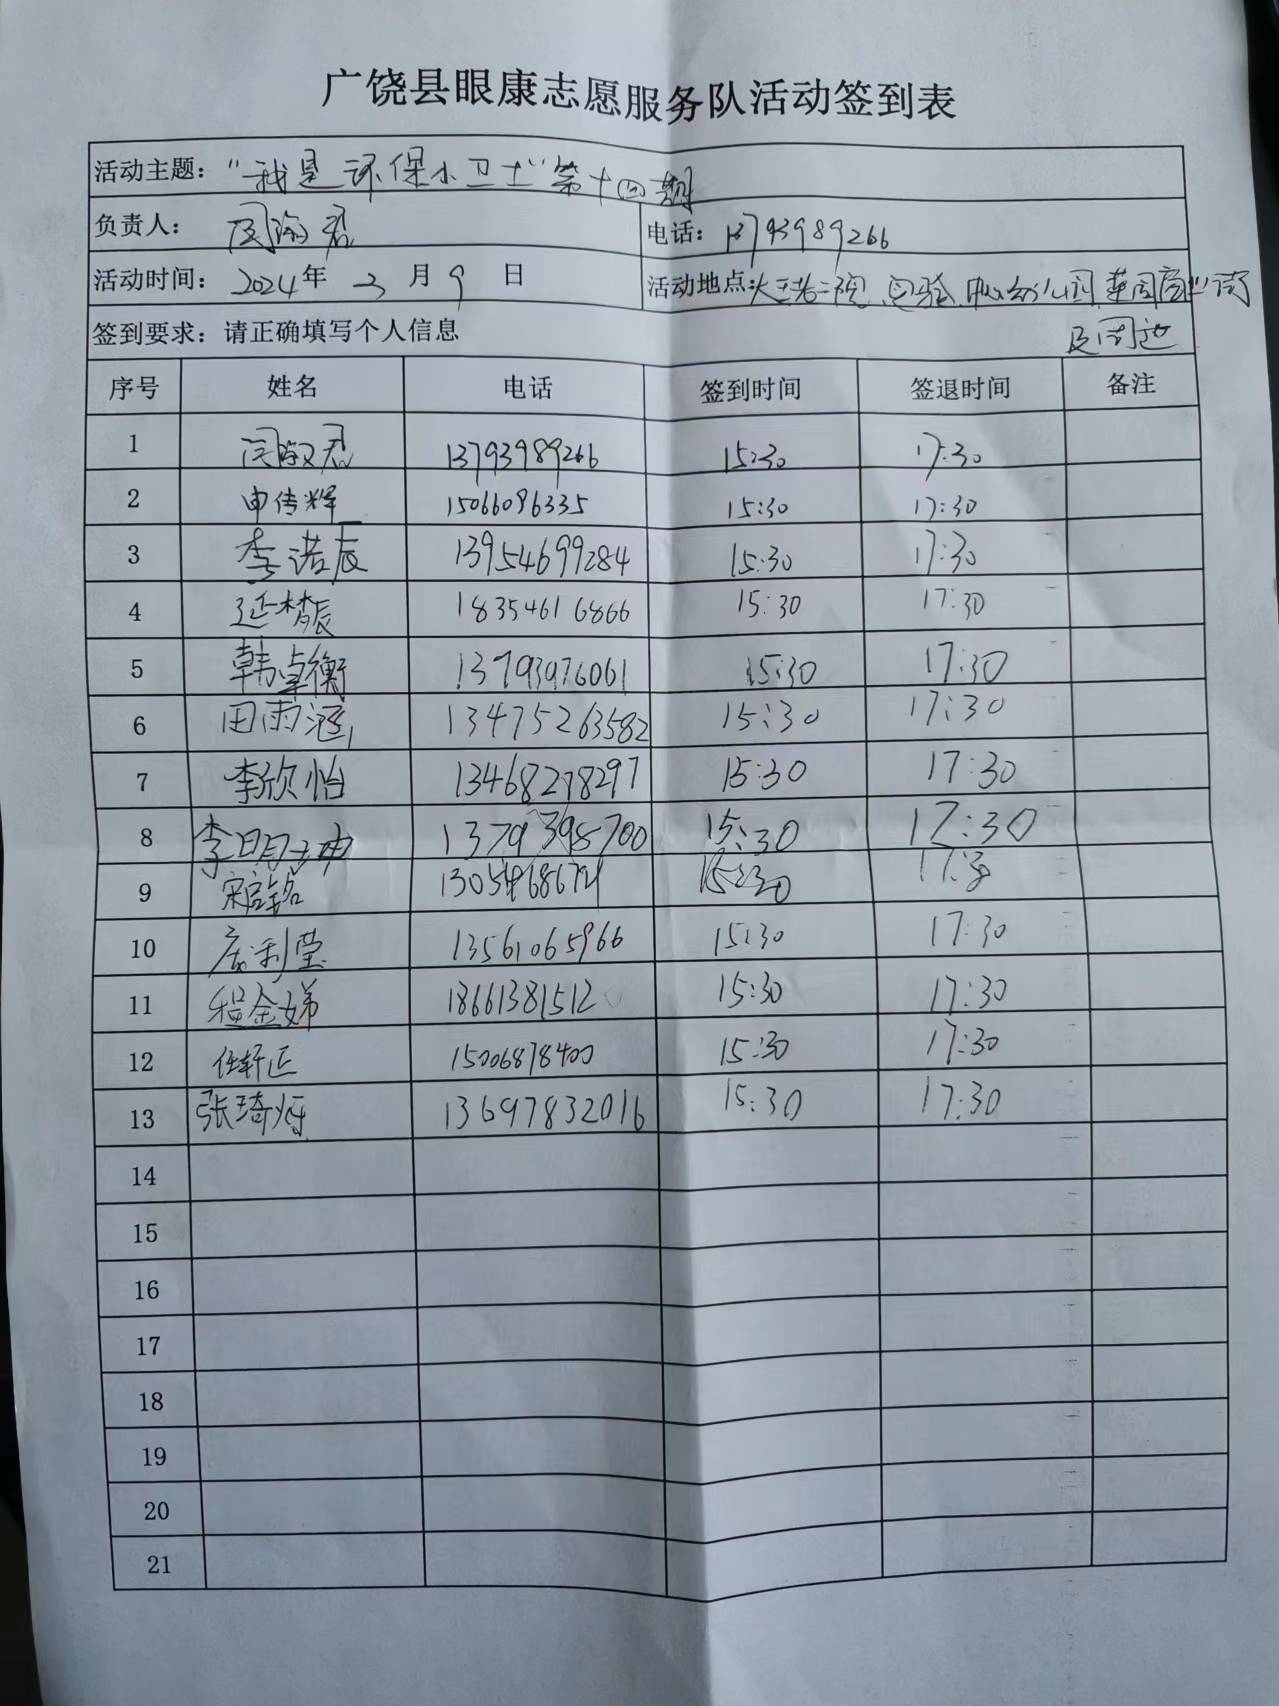 广饶县眼康志愿服务队活动签到表
活动主题：“我是环保小卫士”第十四期
负责人： 电话：13793989266
活动时间：2024年 3 月 9 日 活动地点：
签到要求：请正确填写个人信息 及周边
序号 姓名 电话 签到时间 签退时间 备注
1 13793989266 15:30 17:30
2 申传辉 15066096335 15:30 17:30
3 李诺辰 13954699284 15:30 17:30
4 延梦辰 18354616866 15:30 17:30
5 韩卓衡 13793976061 15:30 17:30
6 田雨涵 13475263582 15:30 17:30
7 李欣怡 13468278297 15:30 17:30
8 李明坤 15:30 17:30
9 15:30
10 13561065966 15:30 17:30
11 程金娣 18661381512 15:30 17:30
12 任轩正 15006878400 15:30 17:30
13 13697832016 15:30 17:30
14
15
16
17
18
19
20
21